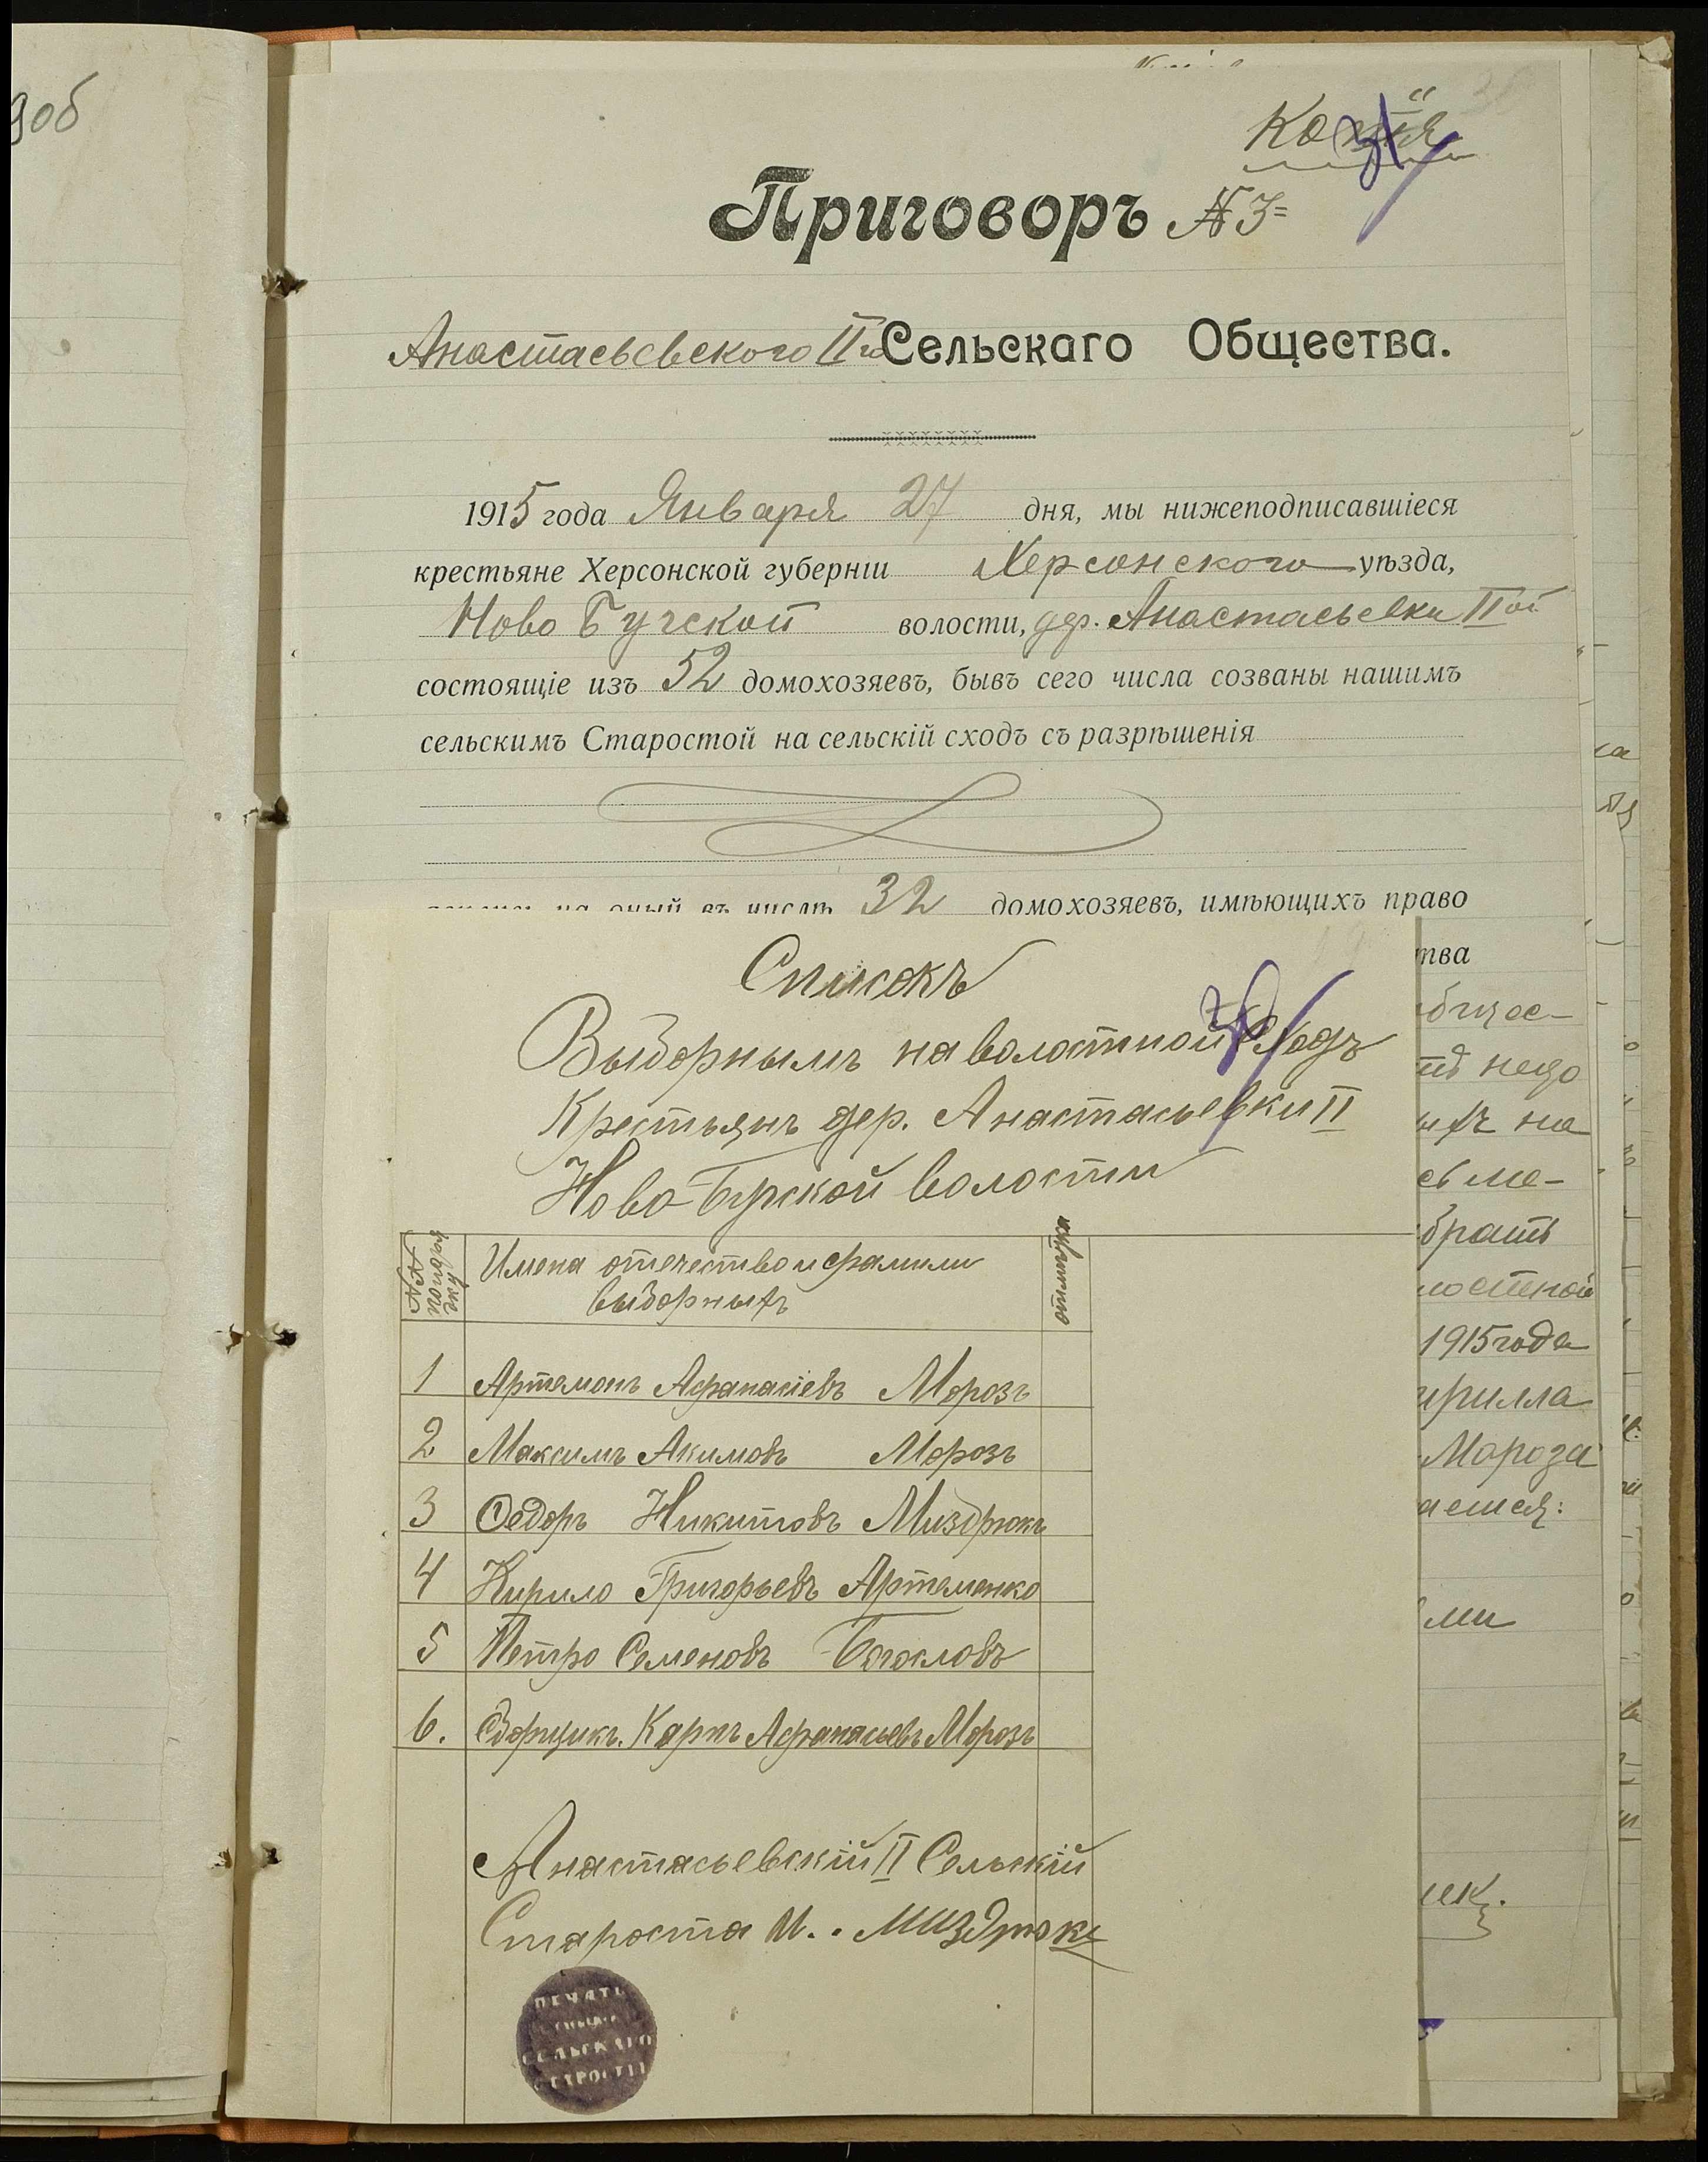 30б
Копія
31
Приговоръ № 3=
Анастасьевского II го Сельскаго Общества.
1915 года Января 27 дня, мы нижеподписавшіеся
крестьяне Херсонской губерніи Херсонского уѣзда,
Ново Бугской волости, дер. Анастасьевки II ой
состоящіе изъ 52 домохозяевъ, бывъ сего числа созваны нашимъ
сельскимъ Старостой на сельскій сходъ съ разрѣшенія
на оный въ числѣ 32 домохозяевъ, имѣющихъ право
тва
1915 года
Мороза
ми
Списокъ
30
Выборнымъ на волостной Сходъ
Крестьянъ дер. Анастасьевки II
Ново-Бугской волости
№№ по порядку
Имена отечество и фамили
выборныхъ
отмѣтка
1 Артемонъ Афанасіевъ Морозъ
2 Максимъ Акимовъ Морозъ
3 Федоръ Никитовъ Миздрюкъ
4 Кирило Григорьевъ Артеменко
5 Петро Семеновъ
6. Зборщикъ. Карпъ Афанасьевъ Морозъ
Анастасьевскій II Сельскій
Староста И.. Миздрюкъ
ПЕЧАТЬ
СЕЛЬСКАГО
СТАРОСТЫ